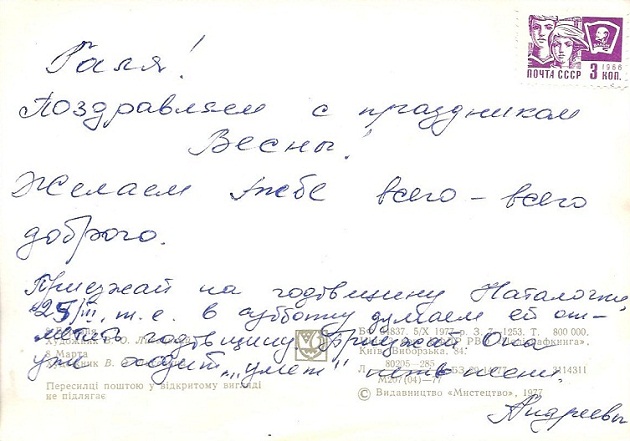 Галя!
ПОЧТА СССР 3 КОП.
1966
Поздравляем с праздником
Весны!
Желаем тебе всего-всего
доброго.
Приезжай на годовщину Наталочки,
25/III, т.е. в субботу думаем ей от-
мечать годовщину. Приезжай Она
уже ходит, „умеет" петь песни.
Андреевы
8 Марта
Пересилці поштою у відкритому вигляді
не підлягає
5/X 1977 р. З. 1253. Т. 800 000.
Київ, Виборзька, 84.
80205-285
М207(04)-77
3114311
© Видавництво «Мистецтво», 1977